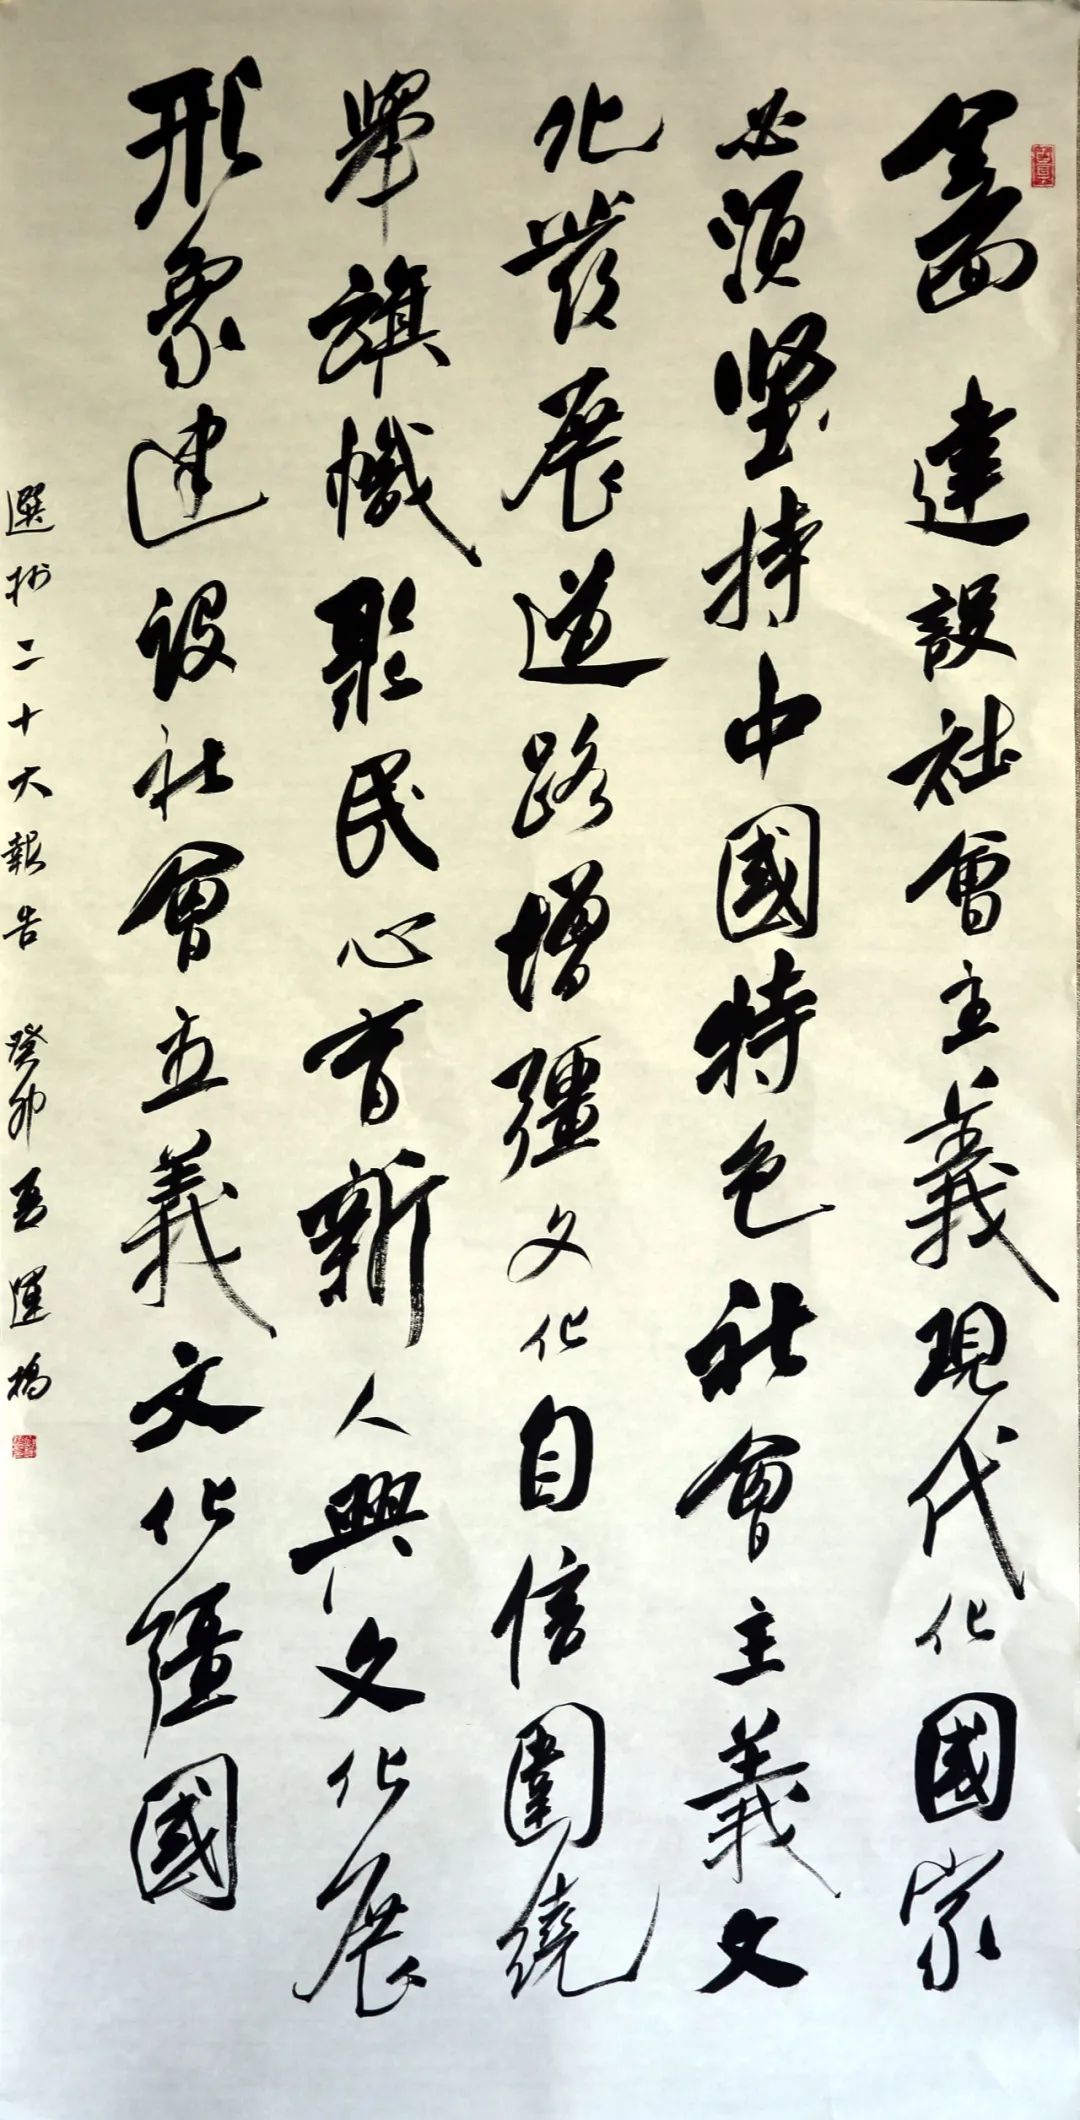 全面建設社會主義現代化國家
必須堅持中國特色社會主義文
化發展道路增彊文化自信圍繞
舉旗幟聚民心育新人興文化展
形象建設社會主義文化彊國
選抄二十大報告 癸卯 夏 運橋